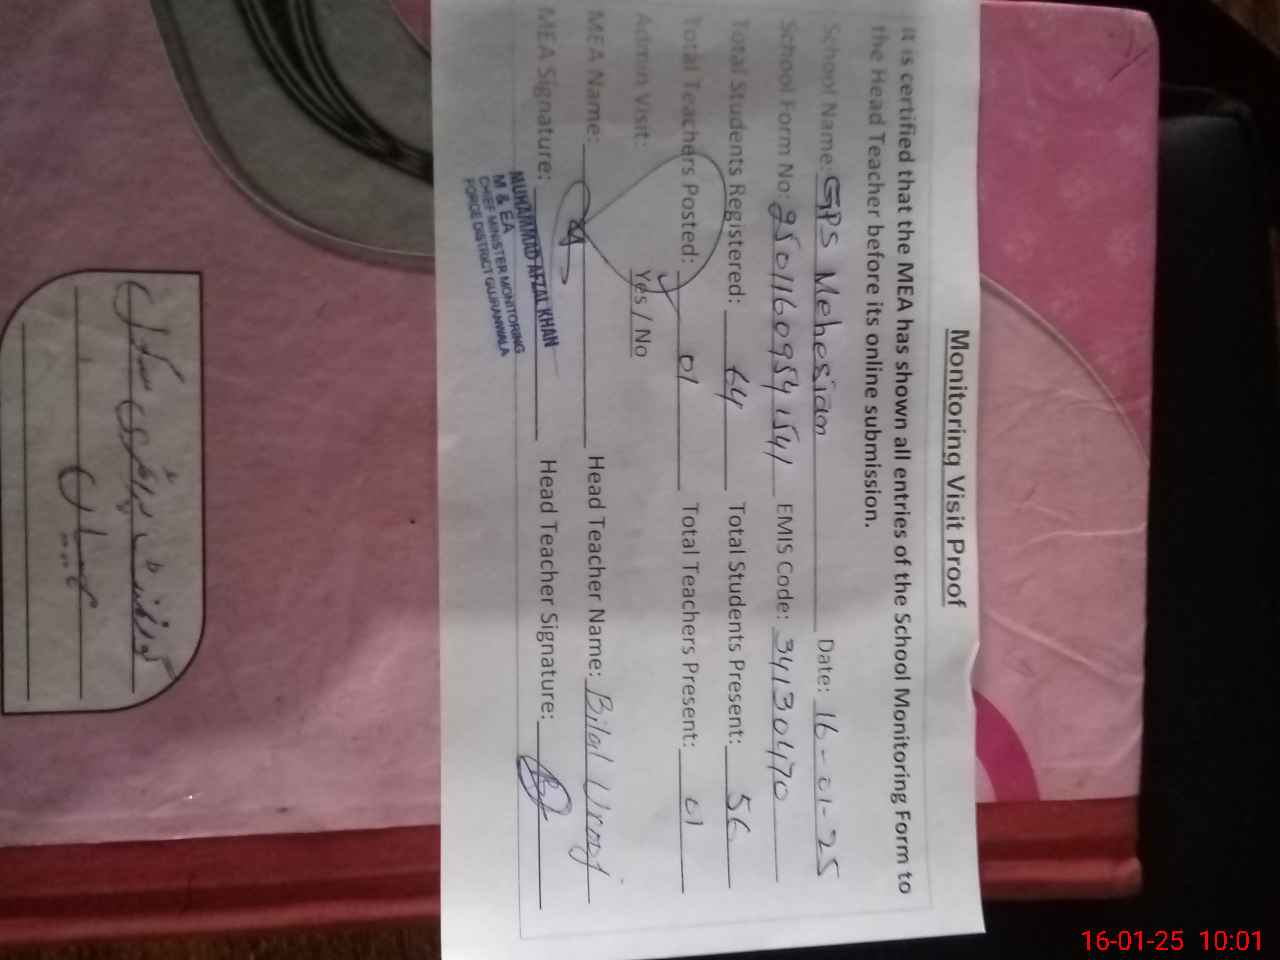 Monitoring Visit Proof
It is certified that the MEA has shown all entries of the School Monitoring Form to
the Head Teacher before its online submission.
School Name: GPS Mehesian Date: 16-01-25
School Form No: 25011609541541 EMIS Code: 34130470
Total Students Registered: 64 Total Students Present: 56
Total Teachers Posted: 01 Total Teachers Present: 01
Admin Visit: Yes / No
MEA Name: Head Teacher Name: Bilal
MEA Signature: Head Teacher Signature:
MUHAMMAD AFZAL KHAN
M & EA
CHIEF MINISTER MONITORING
FORCE DISTRICT GUJRANWALA
گورنمنٹ پرائمری سکول
16-01-25 10:01